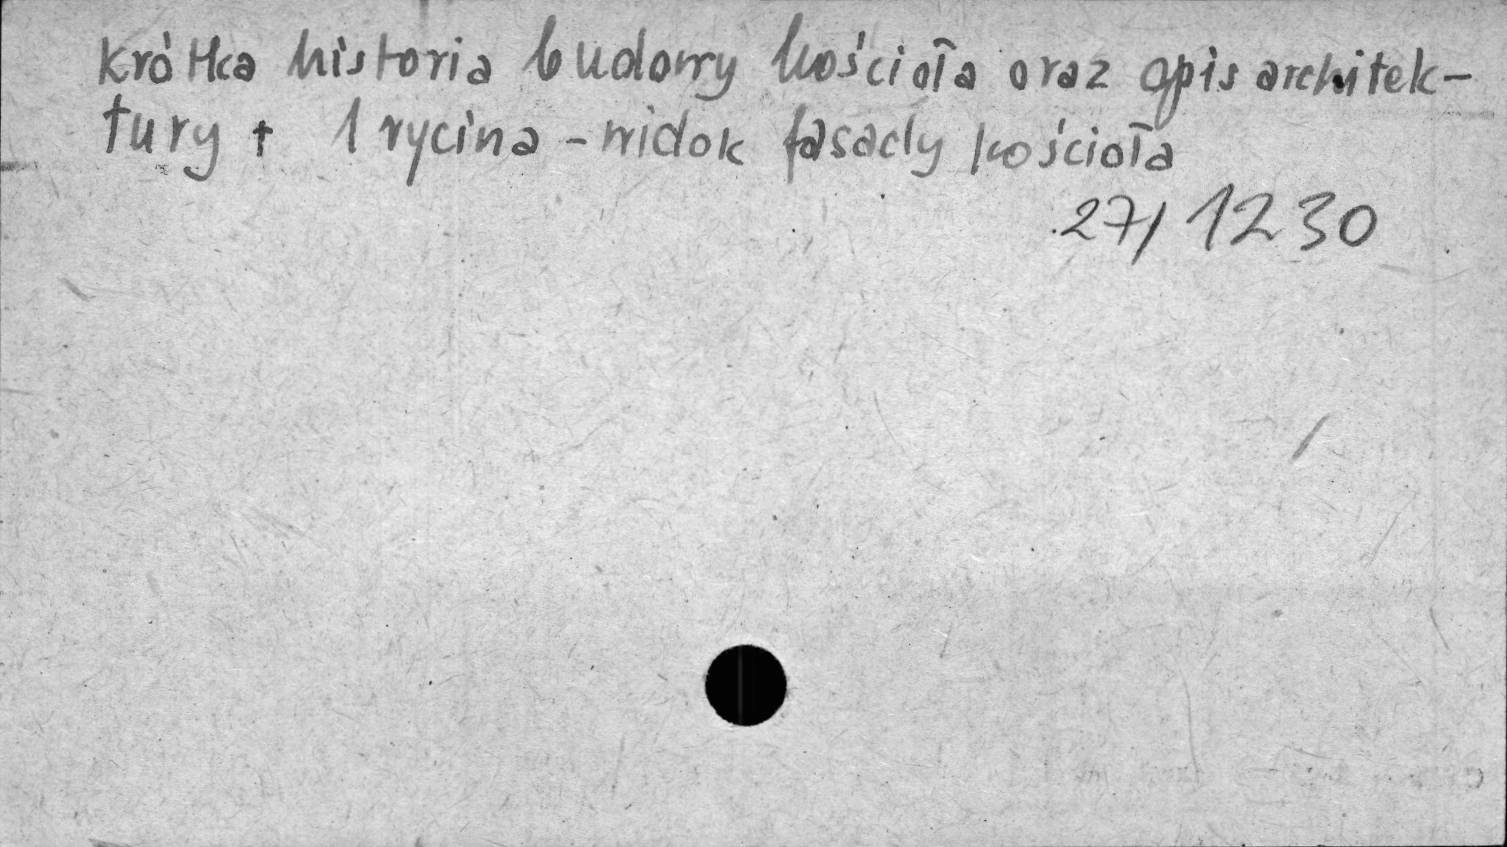 krótka historia budowy kościoła oraz opis architek-
tury + 1 rycina - widok fasady kościoła
27/1230